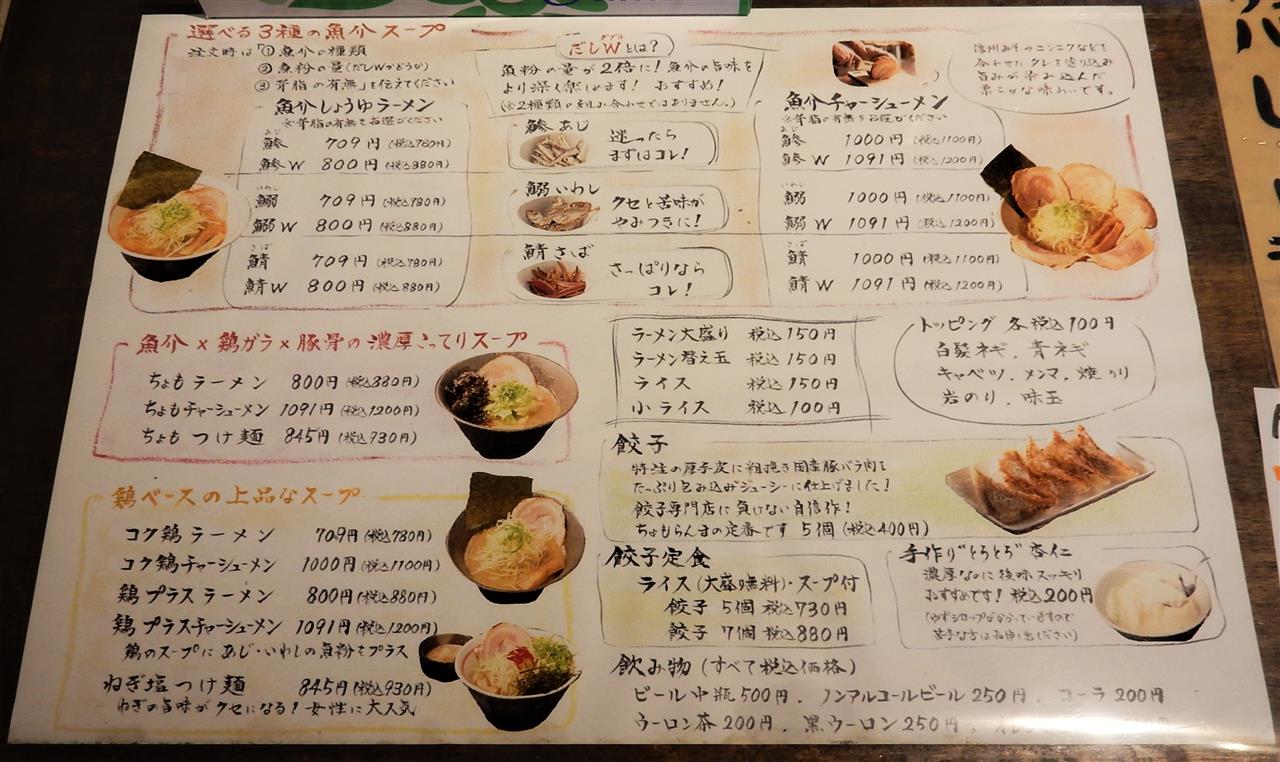 選べる3種の魚介スープ
注文時は「①魚介の種類
②魚粉の量(だしWかどうか)
③背脂の有無」を伝えてください
魚介しょうゆラーメン
※背脂の有無をお選びください
あじ
鯵 709円(税込780円)
鯵W 800円(税込880円)
いわし
鰯 709円(税込780円)
鰯W 800円(税込880円)
さば
鯖 709円(税込780円)
鯖W 800円(税込880円)
ダブル
だしWとは?
魚粉の量が2倍に!魚介の旨味を
より深く楽しめます! おすすめ!
(※2種類の組み合わせではありません。)
鯵あじ
迷ったら
まずはコレ!
鰯いわし
クセと苦味が
やみつきに!
鯖さば
さっぱりなら
コレ!
信州みそやニンニクなどを
合わせたタレを塗り込み
旨みが染み込んだ
柔らかな味わいです。
魚介チャーシューメン
※背脂の有無をお選びください
あじ
鯵 1000円(税込1100円)
鯵W 1091円(税込1200円)
いわし
鰯 1000円(税込1100円)
鰯W 1091円(税込1200円)
さば
鯖 1000円(税込1100円)
鯖W 1091円(税込1200円)
魚介×鶏ガラ×豚骨の濃厚こってりスープ
ちょもラーメン 800円(税込880円)
ちょもチャーシューメン 1091円(税込1200円)
ちょもつけ麺 845円(税込930円)
ラーメン大盛り 税込150円
ラーメン替え玉 税込150円
ライス 税込150円
小ライス 税込100円
トッピング 各税込100円
白髪ネギ、青ネギ
キャベツ、メンマ、焼のり
岩のり、味玉
鶏ベースの上品なスープ
コク鶏ラーメン 709円(税込780円)
コク鶏チャーシューメン 1000円(税込1100円)
鶏プラスラーメン 800円(税込880円)
鶏プラスチャーシューメン 1091円(税込1200円)
鶏のスープにあじ・いわしの魚粉をプラス
ねぎ塩つけ麺 845円(税込930円)
ねぎの旨味がクセになる!女性に大人気
餃子
特注の厚手皮に粗挽き国産豚バラ肉を
たっぷり包み込みジューシーに仕上げました!
餃子専門店に負けない自信作!
ちょもらんまの定番です 5個(税込400円)
餃子定食
ライス(大盛り無料)・スープ付
餃子 5個 税込730円
餃子 7個 税込880円
手作り"とろとろ"杏仁
濃厚なのに後味スッキリ
おすすめです!税込200円
(ゆずシロップがかかっていますので
苦手な方はお申し出ください)
飲み物(すべて税込価格)
ビール中瓶500円、ノンアルコールビール250円、コーラ200円
ウーロン茶200円、黒ウーロン250円、